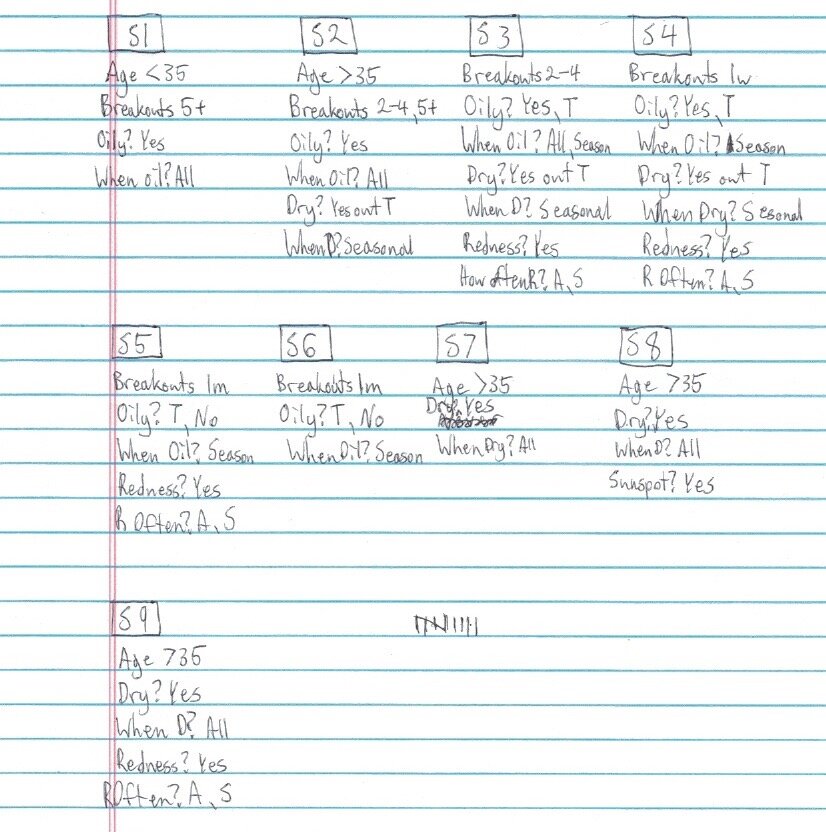 S1
Age <35
Breakouts 5+
Oily? Yes
When oil? All
S2
Age >35
Breakouts 2-4, 5+
Oily? Yes
When Oil? All
Dry? Yes out T
When D? Seasonal
S3
Breakouts 2-4
Oily? Yes, T
When Oil? All, Season
Dry? Yes out T
When D? Seasonal
Redness? Yes
How often R? A, S
S4
Breakouts 1w
Oily? Yes, T
When Oil? Season
Dry? Yes out T
When Dry? Sesonal
Redness? Yes
R Often? A, S
S5
Breakouts 1m
Oily? T, No
When Oil? Season
Redness? Yes
R Often? A, S
S6
Breakouts 1m
Oily? T, No
When Oil? Season
S7
Age >35
Dry? Yes
When Dry? All
S8
Age >35
Dry? Yes
When D? All
Sunspot? Yes
S9
Age >35
Dry? Yes
When D? All
Redness? Yes
R Often? A, S